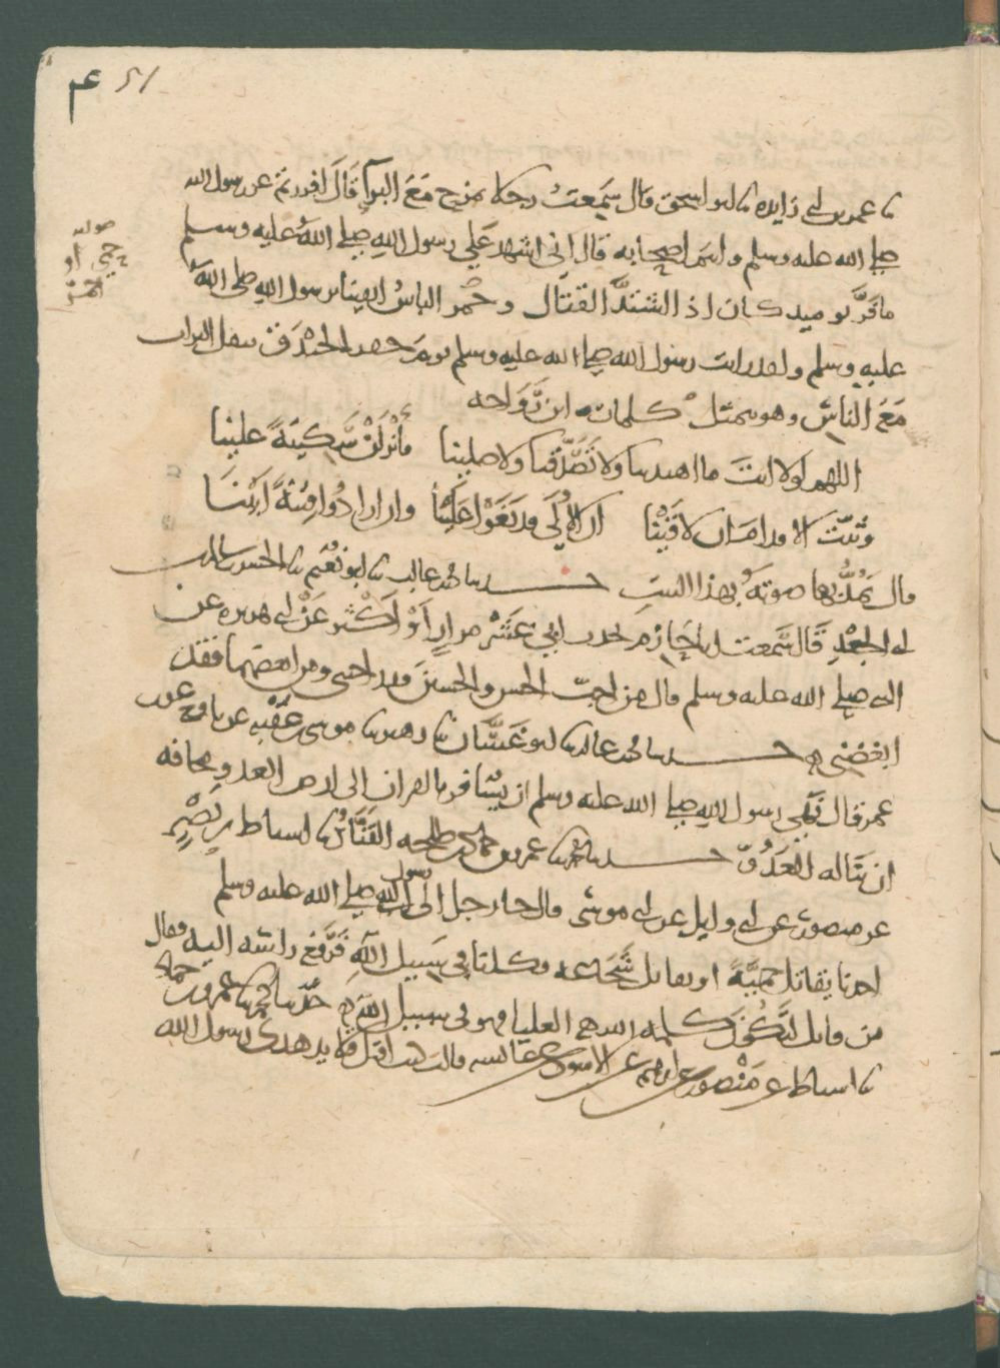 ٤٣ ٥١
نا عمر بن ابي زايده نا ابو اسحق قال سمعت رجلا يمزح مع البرآ قال افررتم عن رسول الله
صلى الله عليه وسلم وانتم اصحابه قال اني اشهد على رسول الله صلى الله عليه وسلم
ما فرّ يوميد كان اذ اشتدّ القتال وحمر الباس اتقينا برسول الله صلى الله
عليه وسلم ولقد رايت رسول الله صلى الله عليه وسلم يوم حفر الخندق ينقل التراب
مع الناس وهو يتمثل كلمات ابن رواحه
اللهم لولا انت ما اهتدينا ولا تصدّقنا ولا صلينا فأنزلن سكينة علينا
وثبّت الاقدام ان لاقينا ان الاولى قد بغوا علينا وان ارادوا فتنة ابينا
قال يمدّ بها صوته بهذا البيت حدثنا محمد بن غالب نا ابو نعيم نا الحسن بن سالم بن
ابي الجعد قال سمعت ابا حازم يحدث اثني عشر مرار او اكثر عن ابي هريره عن
النبي صلى الله عليه وسلم قال من احبّ الحسن والحسين فقد احبني ومن ابغضهما فقد
ابغضني حدثنا محمد بن غالب نا ابو غسّان نا زهير نا موسى بن عقبه عن نافع عن ابن
عمر قال نهى رسول الله صلى الله عليه وسلم ان يسافر بالقران الى ارض العدو مخافه
ان يناله العدوّ حدثنا محمد نا عمرو بن حماد بن طلحه القنّاد نا اسباط بن نصر
عن منصور عن ابي وايل عن ابي موسى قال جا رجل الى رسول الله صلى الله عليه وسلم
احدنا يقاتل حميّة او يقاتل شجاعه فكلنا في سبيل الله فرفع راسه اليه وقال
من قاتل لتكون كلمه الله هي العليا فهو في سبيل الله حدّثنا محمد نا عمرو بن حماد
نا اسباط عن منصور عن ابرهيم عن الاسود عن عايشه قالت كنت افتل قلايد هدى رسول الله